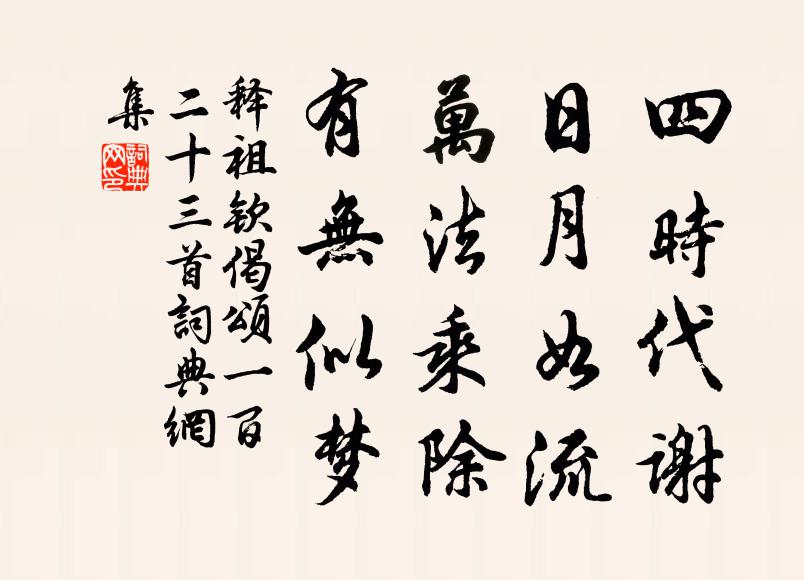 四時代谢
日月如流
萬法乘除
有無似梦
释祖欽偈頌一百
二十三首詞典網
集
詞典
网印